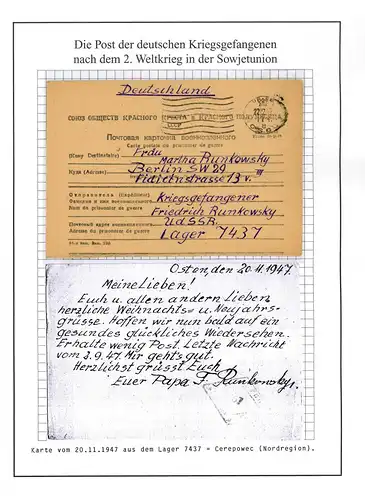 Die Post der deutschen Kriegsgefangenen
nach dem 2. Weltkrieg in der Sowjetunion
Deutschland
СССР
СОЮЗ ОБЩЕСТВ КРАСНОГО КРЕСТА и КРАСНОГО ПОЛУМЕСЯЦА
Почтовая карточка военнопленного
Carte postale du prisonnier de guerre
Кому (Destinataire) Frau
Martha Runkowsky
Куда (Adresse) Berlin SW 29
Fidicinstrasse 13 v. III
Отправитель (Expéditeur)
Фамилия и имя военнопленного Kriegsgefangener
Nom du prisonnier de guerre Friedrich Runkowsky
Почтовый адрес военнопленного UdSSR.
Adresse du prisonnier de guerre Lager 7437
Osten, den 20.11.1947.
Meine Lieben!
Euch u. allen andern Lieben
herzliche Weihnachts= u. Neujahrs-
grüsse. Hoffen wir nun bald auf ein
gesundes glückliches Wiedersehen.
Erhalte wenig Post. Letzte Nachricht
vom 3.9.47. Mir geht's gut.
Herzlichst grüsst Euch
Euer Papa F. Runkowsky.
Karte vom 20.11.1947 aus dem Lager 7437 = Cerepowec (Nordregion).